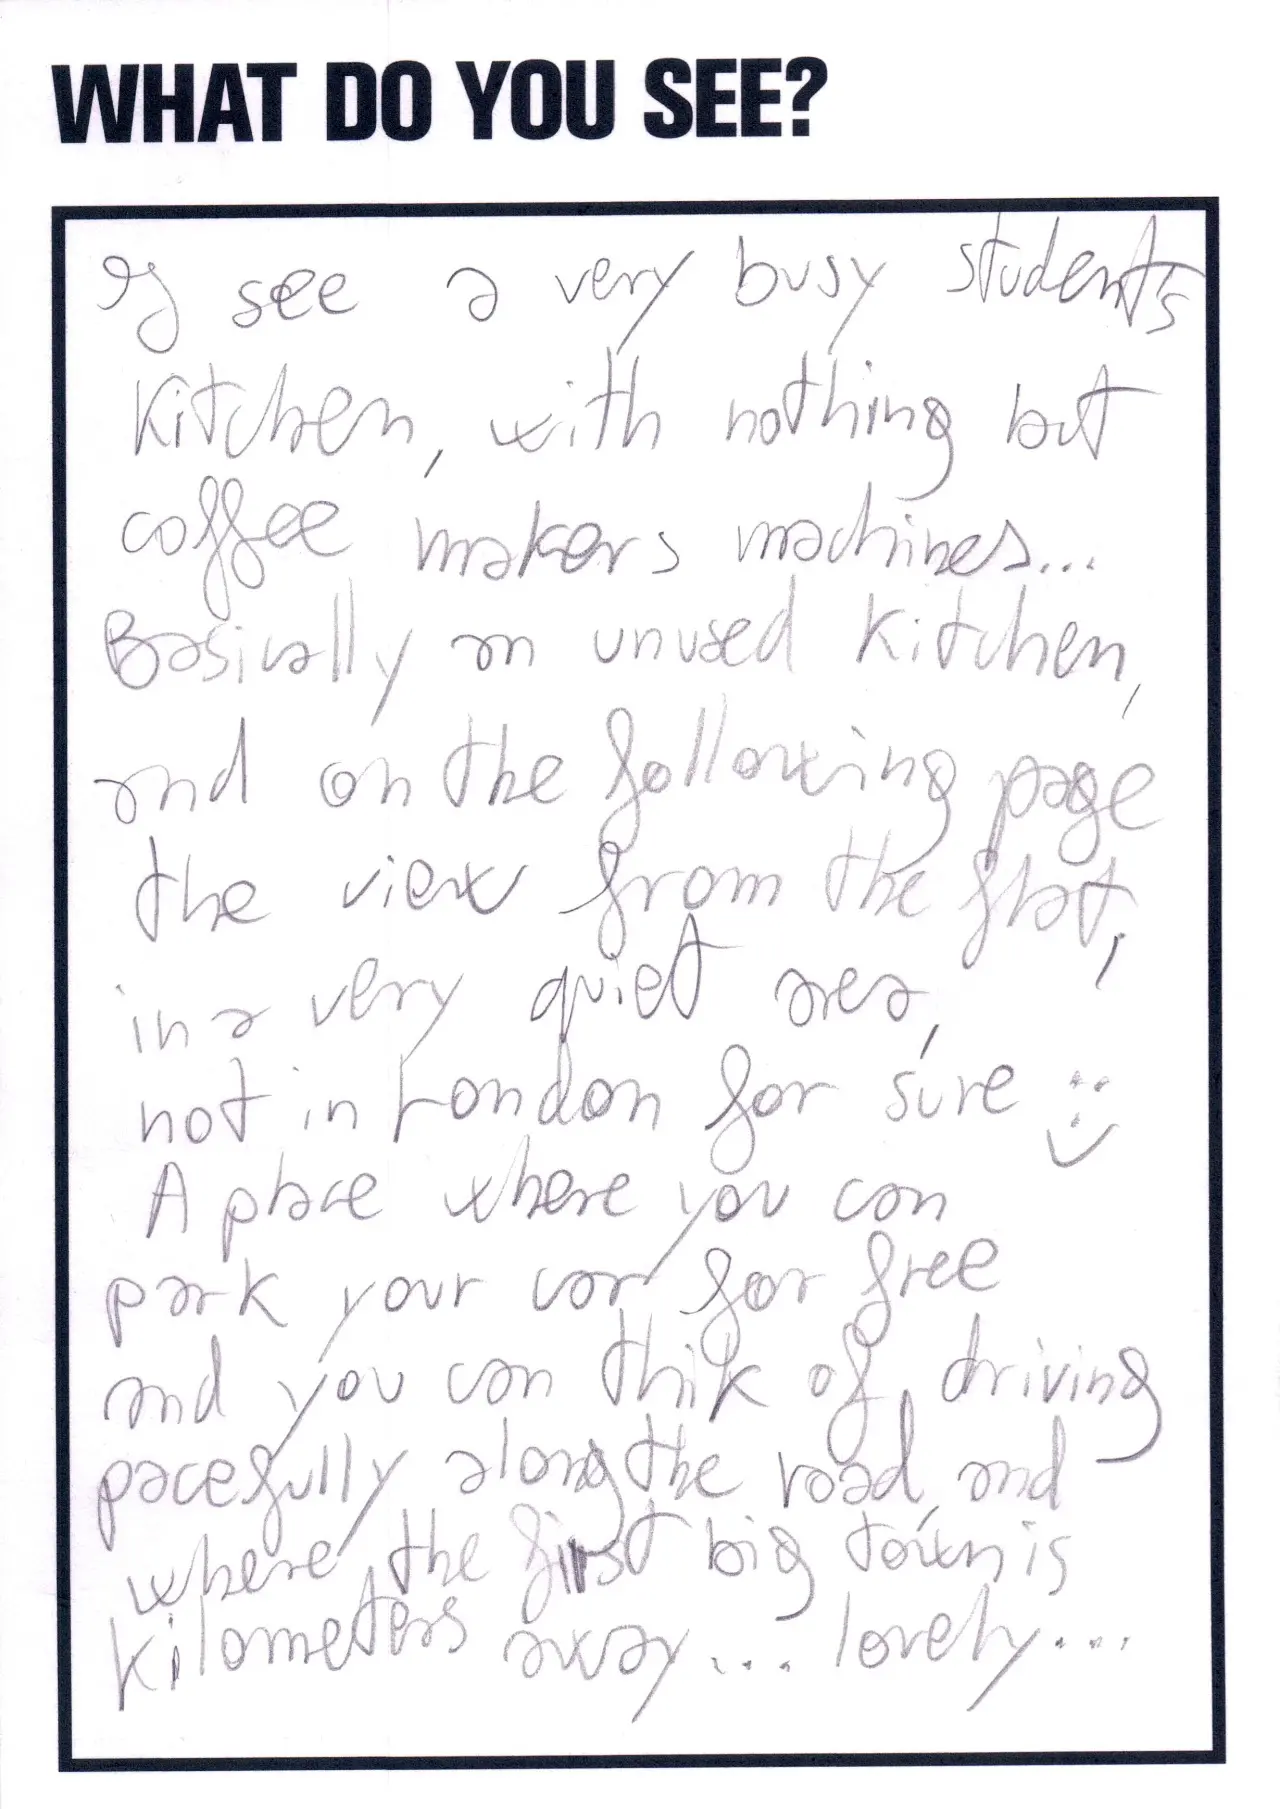 WHAT DO YOU SEE?
I see a very busy students
Kitchen, with nothing but
coffee makers machines...
Basically an unused kitchen,
and on the following page
the view from the flat,
in a very quiet area,
not in London for sure :)
A place where you can
park your car for free
and you can think of driving
pacefully along the road, and
where the first big town is
kilometers away... lovely...